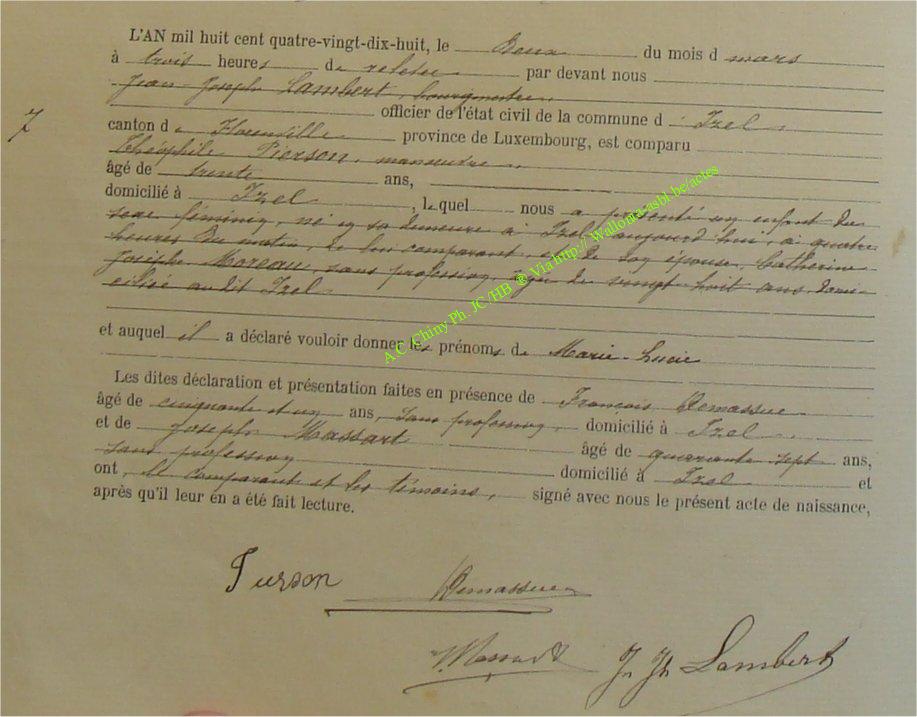 L'AN mil huit cent quatre-vingt-dix-huit, le deux du mois d mars
à trois heures de relevée par devant nous
Jean Joseph Lambert, bourgmestre
officier de l'état civil de la commune d Izel
7
canton de Florenville province de Luxembourg, est comparu
Théophile Pierson, manoeuvre
âgé de trente ans,
domicilié à Izel, lequel nous a présenté un enfant du
sexe féminin, né en sa demeure à Izel, aujourd'hui, à quatre
heures du matin, de lui comparant, et de son épouse, Catherine
Joseph Moreau, sans profession, âgée de vingt huit ans, domi-
ciliée audit Izel
et auquel il a déclaré vouloir donner les prénoms de Marie-Lucie
Les dites déclaration et présentation faites en présence de François Demassue
âgé de cinquante et un ans, sans profession, domicilié à Izel
et de Joseph Massart âgé de quarante sept ans,
sans profession domicilié à Izel et
ont, le comparant et les témoins, signé avec nous le présent acte de naissance,
après qu'il leur en a été fait lecture.
Pierson Demassue
Massart J. Jh Lambert
A.C. Chiny Ph. JC/HB ® Via http:// Wallonia-asbl.be/actes